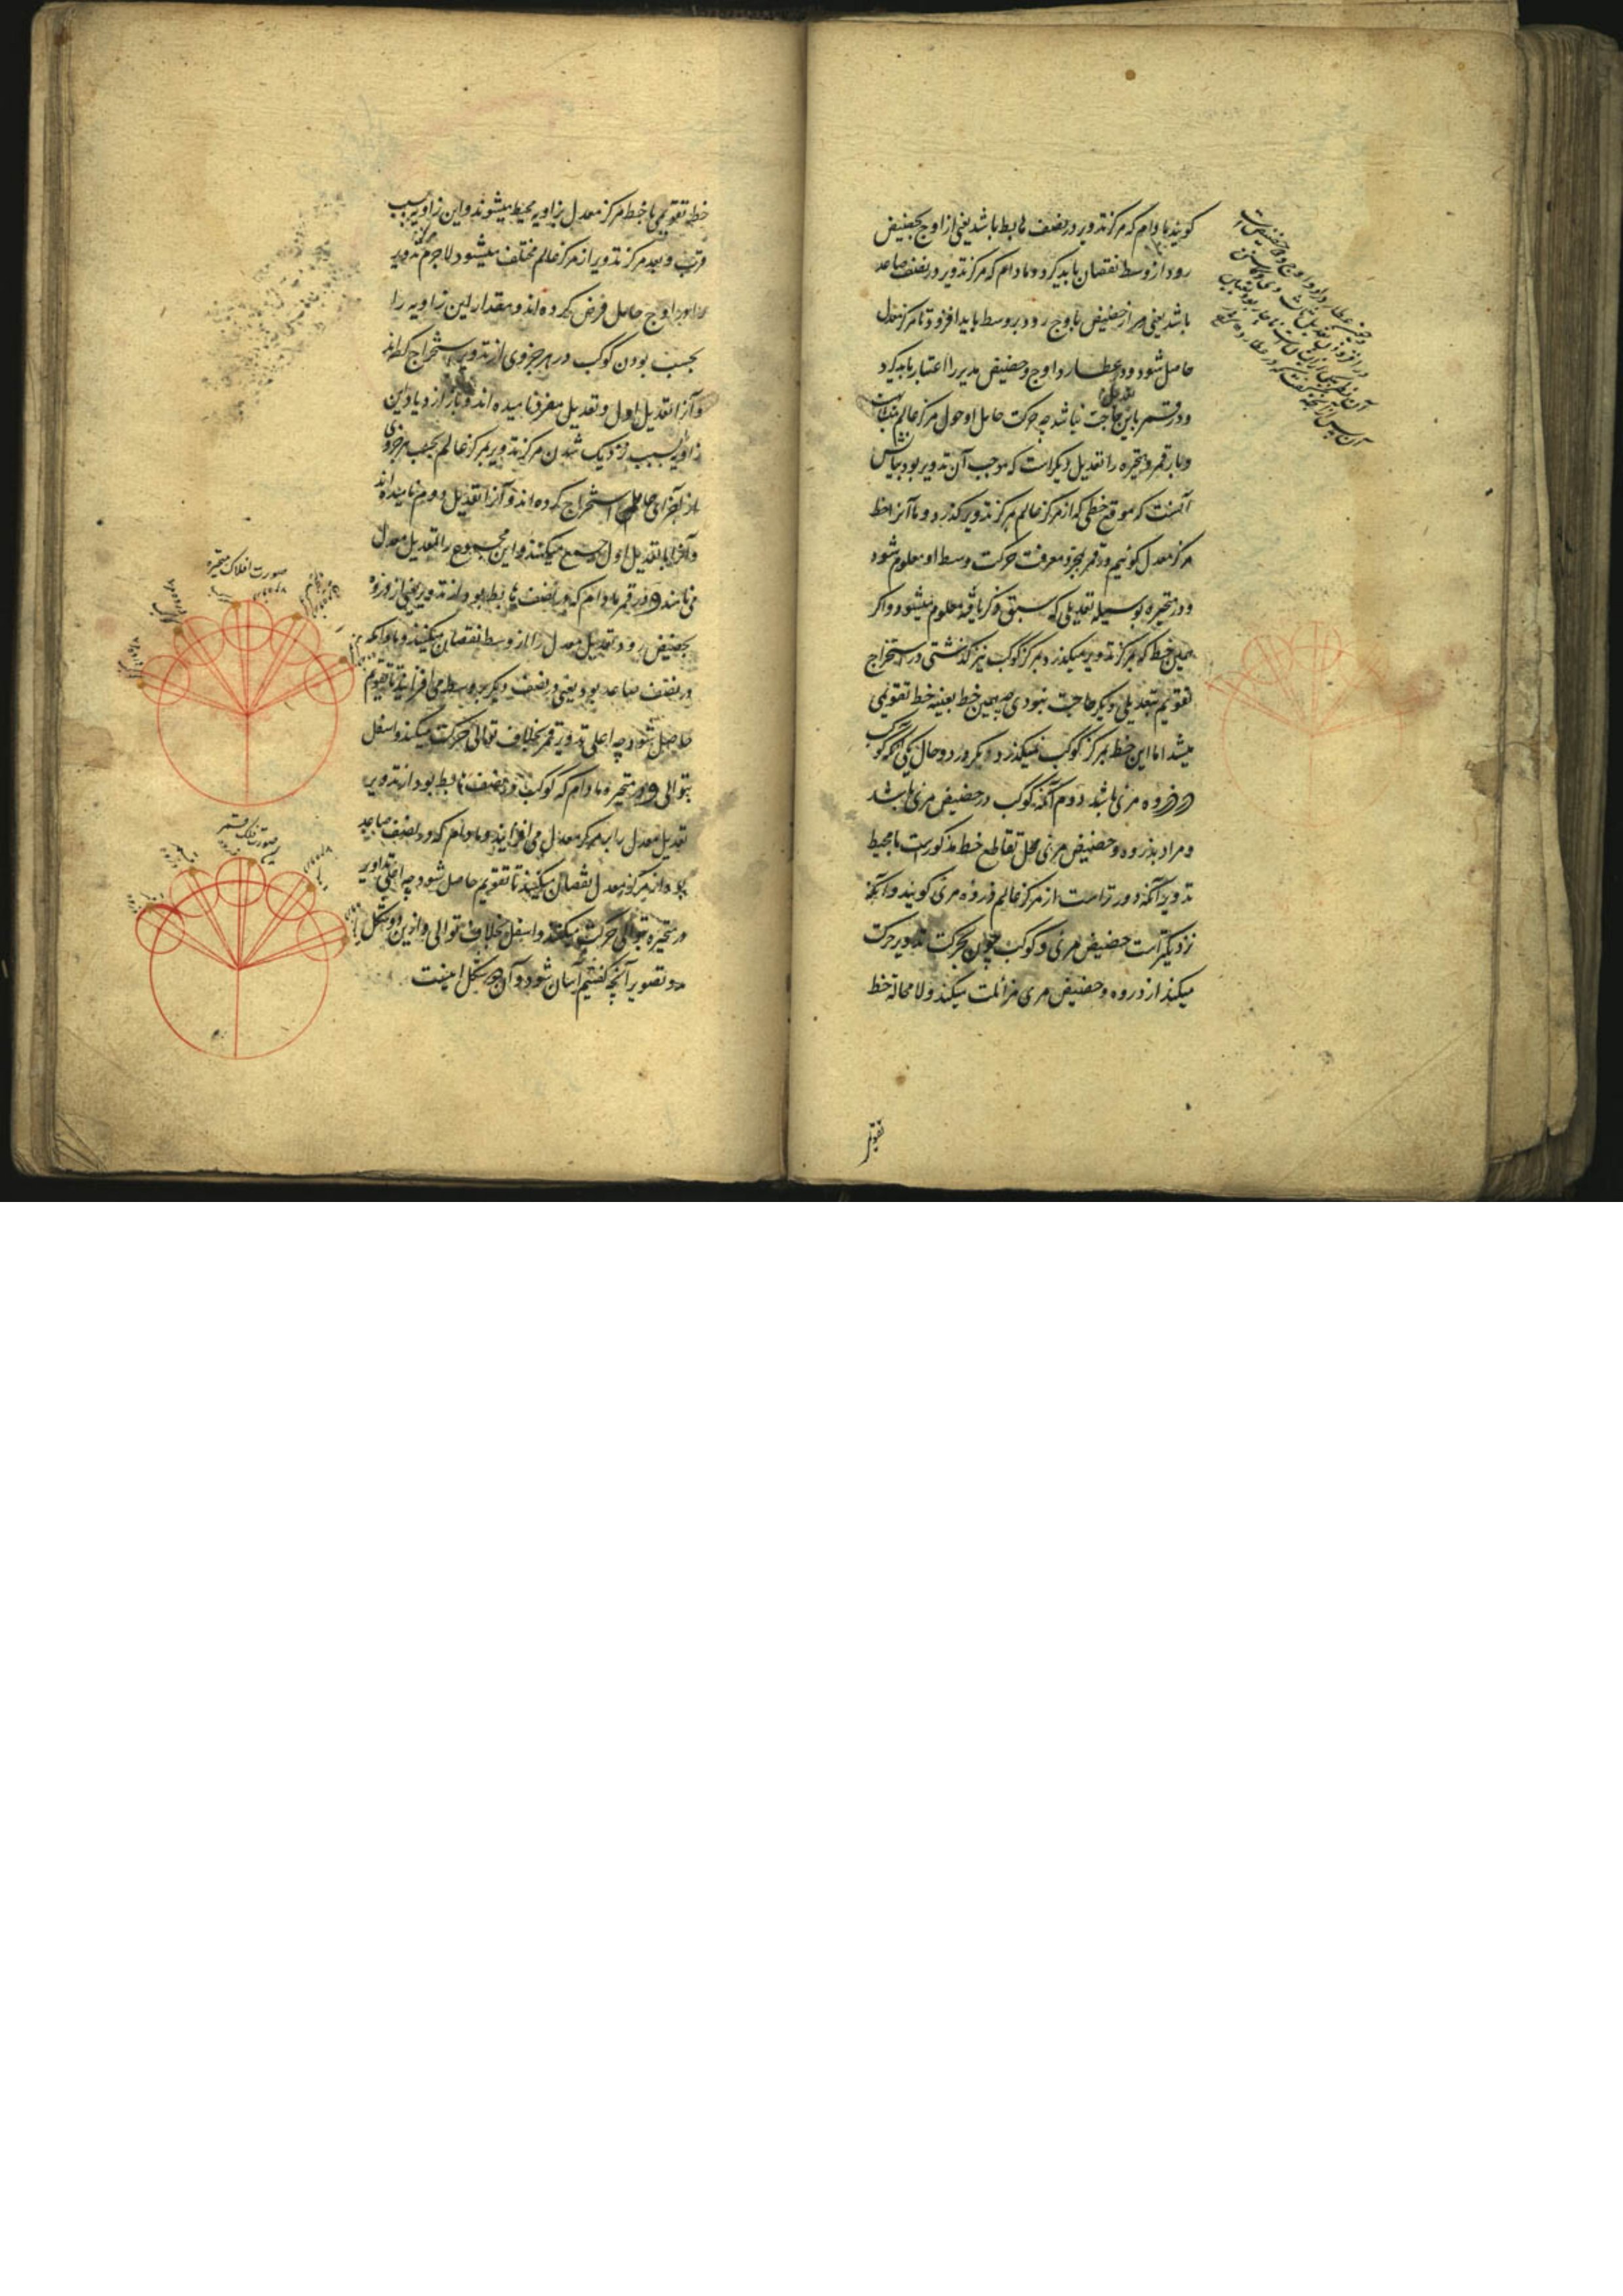 کویند مادام که مرکز تدویر در نصف هابط باشد یعنی از اوج بحضیض
رود از وسط نقصان باید کرد و مادام که مرکز تدویر در نصف صاعد
باشد یعنی از حضیض باوج رود بر وسط باید افزود تا مرکز معدل
حاصل شود و در عطارد اوج و حضیض مدیر را اعتبار باید کرد
و در قمر باین حاجت نباشد چه حرکت حامل او حول مرکز عالم متشابه است
و باز قمر و متحیره را تعدیل دیکر است که موجب آن تدویر بود بیانش
آنست که موقع خطی که از مرکز عالم بمرکز تدویر کذرد و ما آنرا خط
مرکز معدل کوئیم و در قمر بمجرد معرفت حرکت وسط او معلوم شود
و در متحیره بوسیله تعدیلی که سبق ذکر یافته معلوم میشود و اکر
همین خط که بمرکز تدویر میکذرد بمرکز کوکب نیز کذشتی در استخراج
تقویم بتعدیلی دیکر حاجت نبودی چه همین خط بعینه خط تقویمی
میشد اما این خط بمرکز کوکب نمیکذرد مکر در دو حال یکی آنکه کوکب
در ذروه مرئی باشد دوم آنکه کوکب در حضیض مرئی باشد
و مراد بذروه و حضیض مرئی محل تقاطع خط مذکور است با محیط
تدویر آنکه دورتر است از مرکز عالم ذروه مرئی کویند و آنکه
نزدیکتر است حضیض مرئی و کوکب چون بحرکت تدویر حرکت
میکند از ذروه و حضیض مرئی مزائلت میکند و لا محاله خط
خط تقویمی با خط مرکز معدل بزاویه محیط میشوند و این زاویه بسبب
قرب و بعد مرکز تدویر از مرکز عالم مختلف میشود لاجرم مرکز تدویر
را در اوج حامل فرض کرده اند و مقدار این زاویه را
بحسب بودن کوکب در هر جزوی از تدویر استخراج کرده اند
و آنرا تعدیل اول و تعدیل مفرد نامیده اند و باز ازدیاد این
زاویه بسبب نزدیک شدن مرکز تدویر بمرکز عالم بحسب هر جزوی
از اجزای حامل استخراج کرده اند و آنرا تعدیل دوم نامیده اند
و آنرا با تعدیل اول جمع میکنند و این مجموع را تعدیل معدل
می نامند و در قمر مادام که در نصف هابط بود از تدویر یعنی از ذروه
بحضیض رود تعدیل معدل را از وسط نقصان میکنند و مادام که
در نصف صاعد بود یعنی در نصف دیکر بر وسط می افزایند تا تقویم
حاصل شود چه اعلی تدویر قمر بخلاف توالی حرکت میکند و اسفل
بتوالی و در متحیره مادام که کوکب در نصف هابط بود از تدویر
تعدیل معدل را بر مرکز معدل می افزایند و مادام که در نصف صاعد
بود از مرکز معدل نقصان میکنند تا تقویم حاصل شود چه اعلی تداویر
متحیره بتوالی حرکت میکنند و اسفل بخلاف توالی و از این دو شکل
تصویر آنچه کفتیم آسان شود و آن دو شکل اینست
صورت افلاک متحیره
صورت فلک قمر